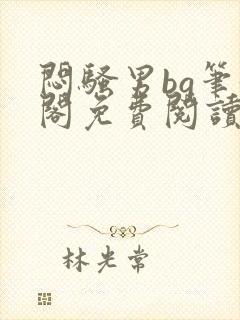 悶騷男bg筆
閣免費閱讀
林光常